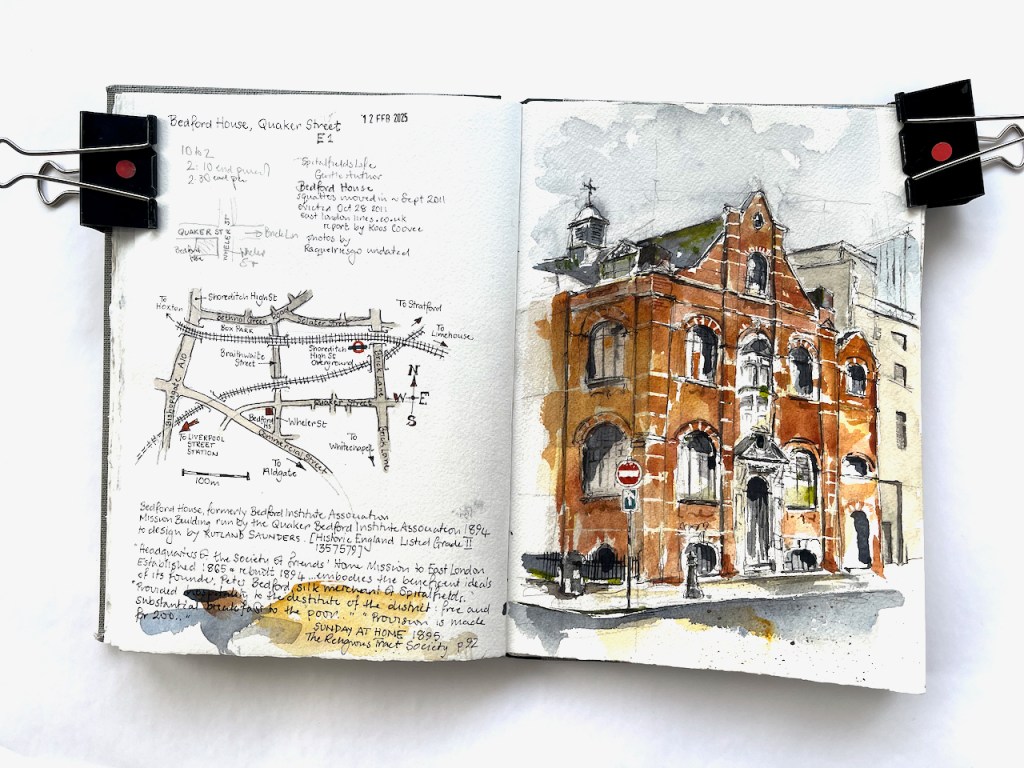 Bedford House, Quaker Street
E1
12 FEB 2025
10 to 2
2:10 end pencil
2 30 end pen
Spitalfields Life
Gentle Author
Bedford House
squatters moved in ~ Sept 2011
evicted Oct 28 2011
east london lines.co.uk
report by Koos Couvee
photos by
Raquelriesgo undated
QUAKER ST
WHELER ST
Brick Ln
Bedford
Hse
Wheler
St
To
Hoxton
Shoreditch High St
To Stratford
Bethnal Green
BOX PARK
To
Limehouse
Shoreditch
High St
Overground
Braithwaite
Street
Brick Lane
Bishopsgate A10
N
W
E
S
Quaker Street
Bedford
Hs
Wheler St
To
LIVERPOOL
STREET
STATION
Commercial Street
To
Whitechapel
Brick Lane
To
Aldgate
100m
Bedford House, formerly Bedford Institute Association
Mission Building run by the Quaker Bedford Institute Association 1894
to design by RUTLAND SAUNDERS. [Historic England Listed Grade II
1357579]
"Headquarters of the Society of Friends' Home Mission to East London
Established 1865 rebuilt 1894 ...embodies the beneficent ideals
of its founder, Peter Bedford silk merchant of Spitalfields.
"Provided to the destitute of the district: free and
substantial breakfast to the poor.." "Provision is made
for 200.."
SUNDAY AT HOME 1895
The Religious Tract Society p92